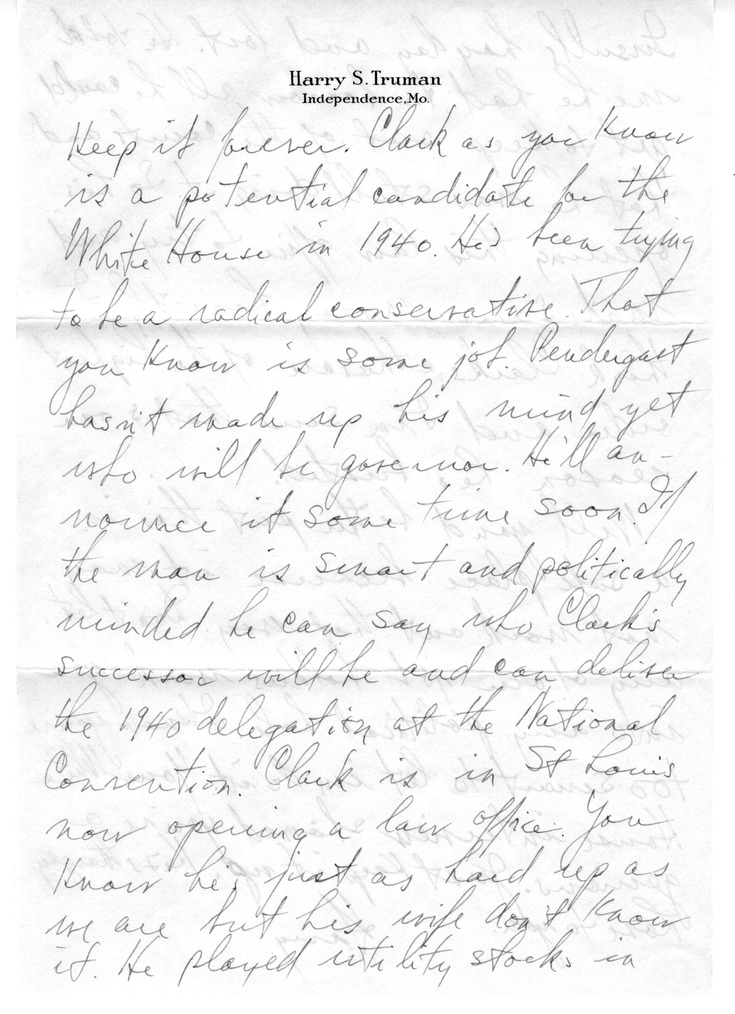 Harry S. Truman
Independence, Mo.
Keep it forever. Clark as you know
is a potential candidate for the
White House in 1940. He's been trying
to be a radical conservative. That
you know is some job. Pendergast
hasn't made up his mind yet
who will be governor. He'll an-
nounce it some time soon. If
the man is smart and politically
minded he can say who Clark's
successor will be and can deliver
the 1940 delegation at the National
Convention. Clark is in St Louis
now opening a law office. You
know he's just as hard up as
we are but his wife don't know
it. He played utility stocks in